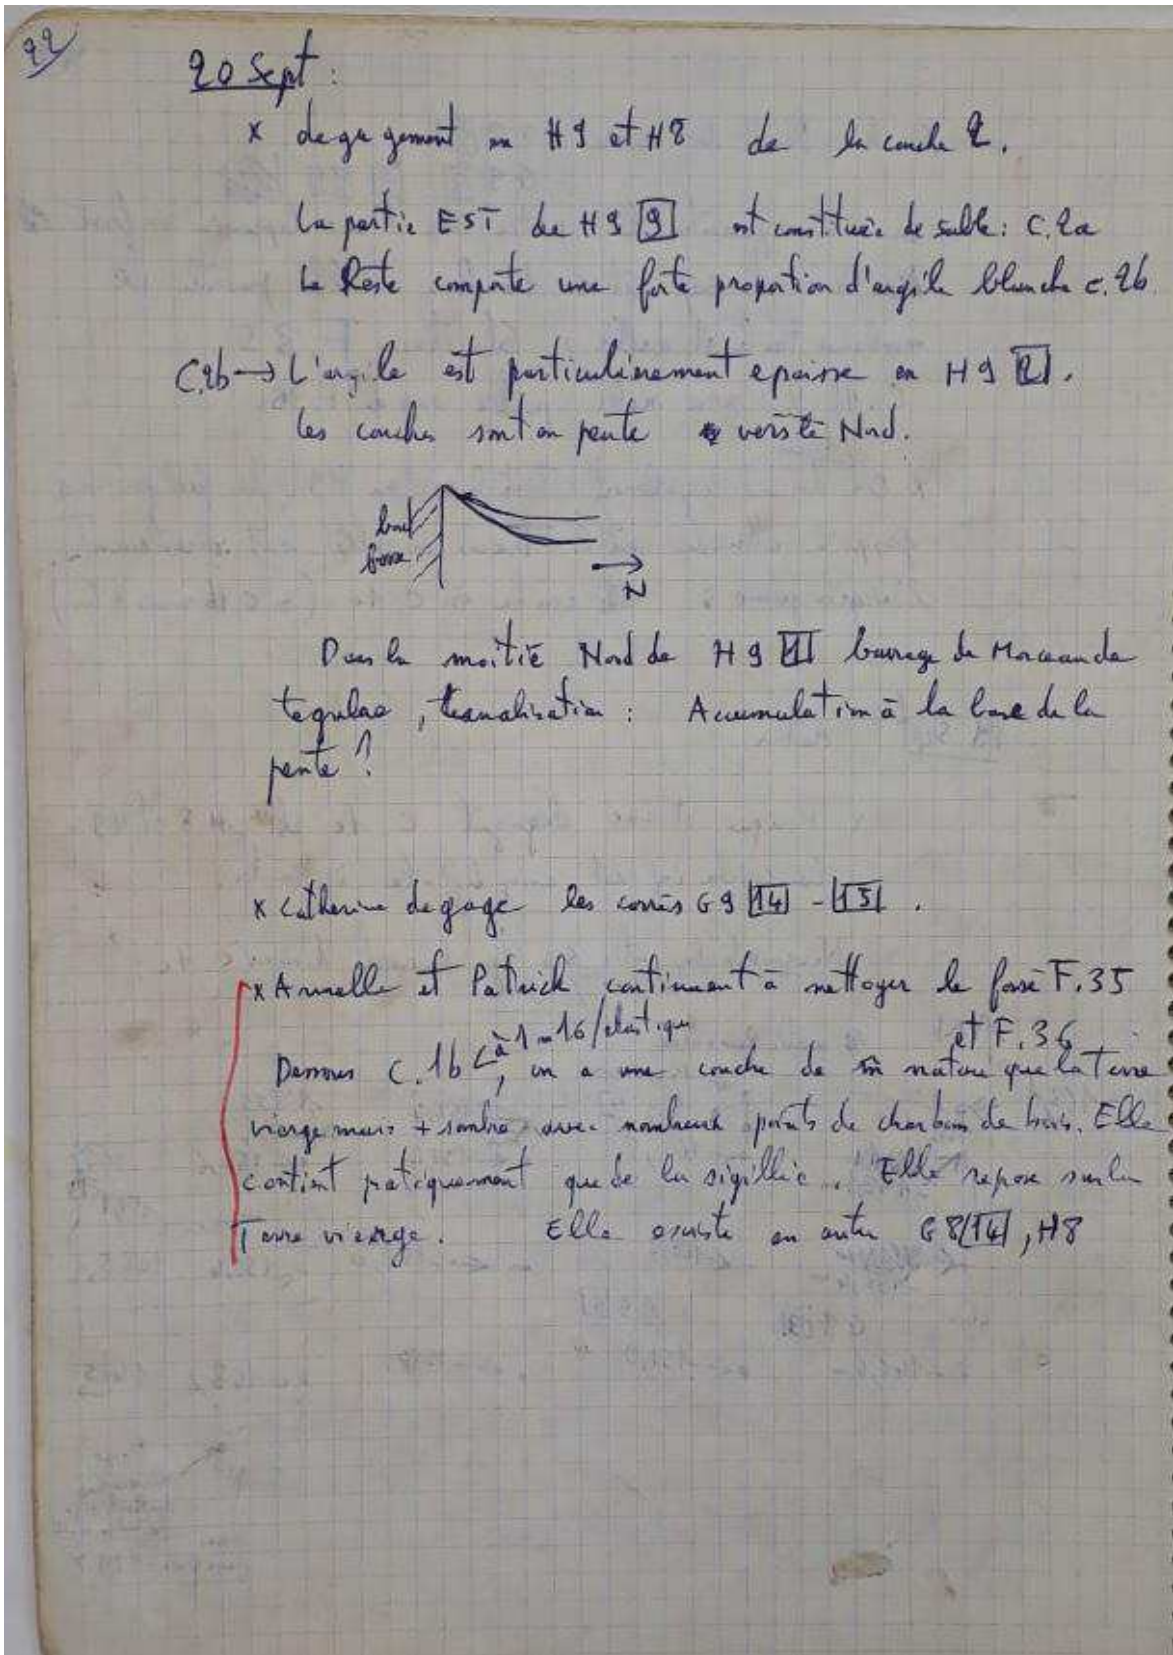 22
20 Sept :
x degagement en H9 et H8 de la couche 2.
La partie EST de H9 [9] est constituée de sable : C.2a
Le Reste comporte une forte proportion d'argile blanche c.2b.
C.2b → L'argile est particulièrement epaisse en H9 [2].
les couches sont en pente vers le Nord.
N
Dans la moitié Nord de H9 [1] de Morceau de
tegulae, : Accumulation à la base de la
pente ?
x Catherine degage les carrés G9 [14] - [15].
x Armelle et Patrick continuent à nettoyer le fossé F.35
et F.36
Dessous C.1b, on a une couche de m̂ nature que la Terre
vierge mais + sombre avec nombreux points de charbons de bois. Elle
contient pratiquement que de la sigillée. Elle repose sur la
Terre vierge. Elle existe en outre G8 [14], H8